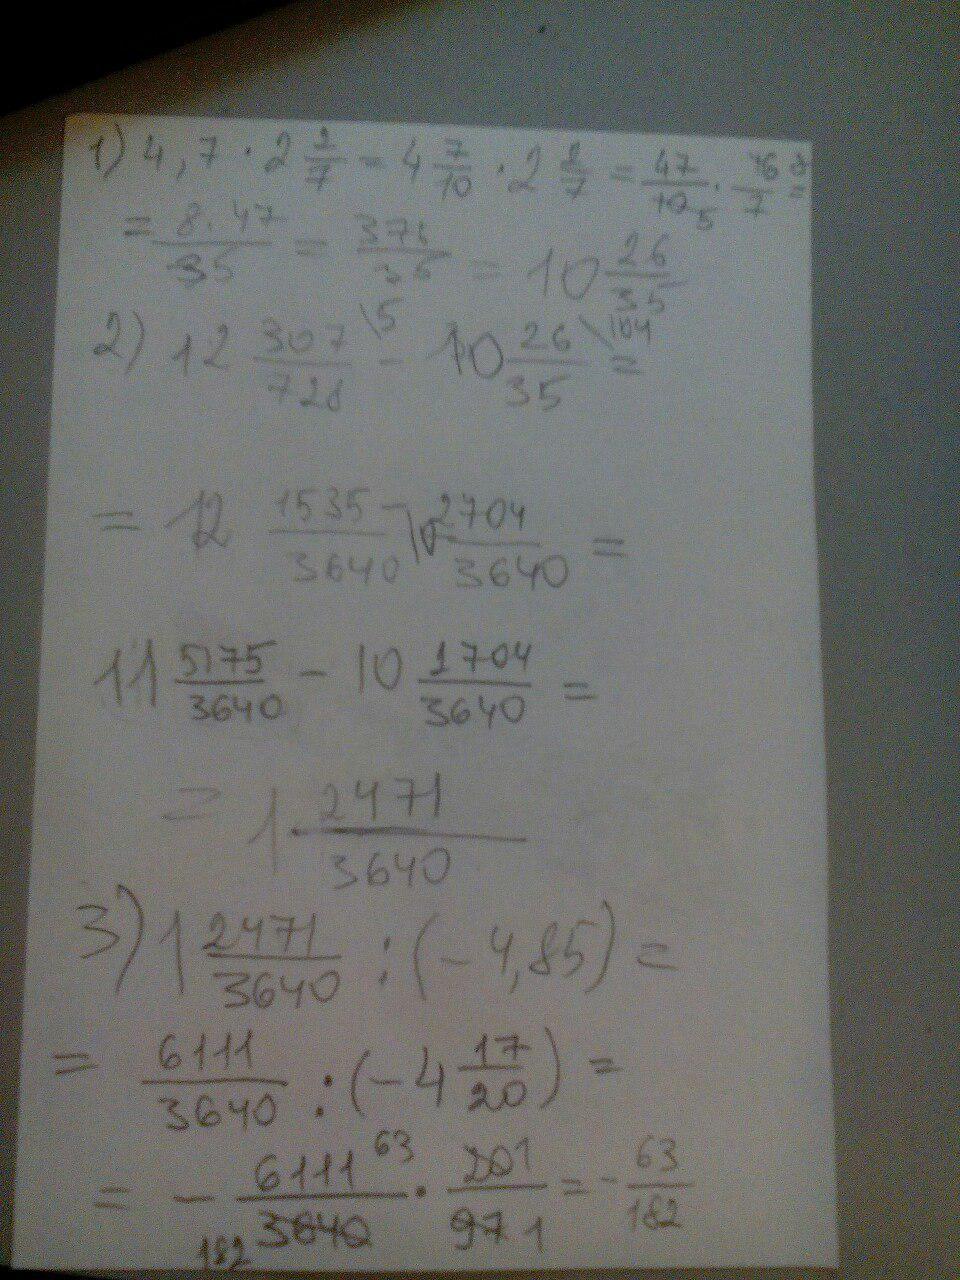 1) 4,7 · 2 2/7 = 4 7/10 · 2 2/7 = 47/10 5 · 16 8/7 =
= 8·47/35 = 376/35 = 10 26/35
2) 12 307/728 \5 - 10 26/35 \104 =
= 12 1535/3640 - 10 2704/3640 =
11 5175/3640 - 10 1704/3640 =
= 1 2471/3640
3) 1 2471/3640 : (-4,85) =
= 6111/3640 : (-4 17/20) =
= - 6111 63/3640 182 · 20 1/97 1 = - 63/182